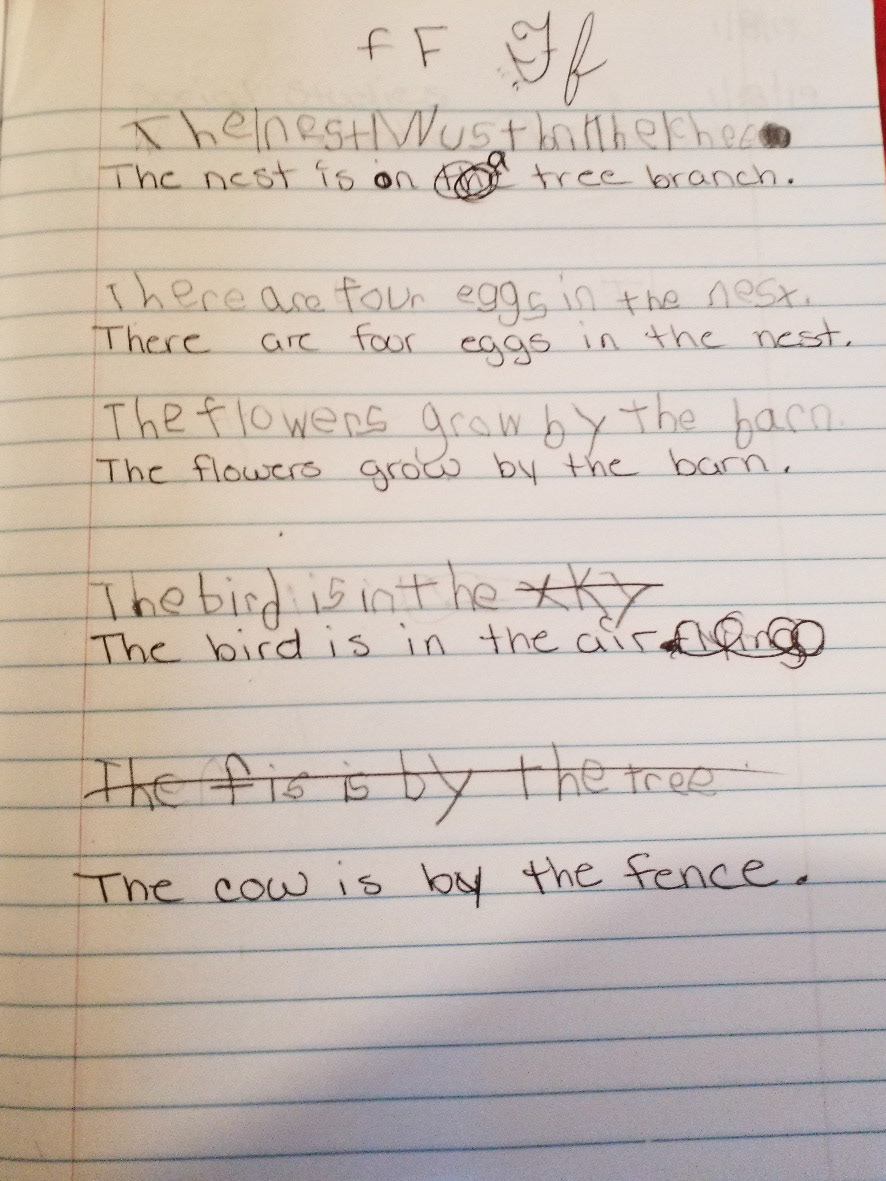 f F F f
The nest
The nest is on a tree branch.
There are four eggs in the nest.
There are four eggs in the nest.
The flowers grow by the barn
The flowers grow by the barn.
The bird is in the xky
The bird is in the air.
The f is is by the tree
The cow is by the fence.